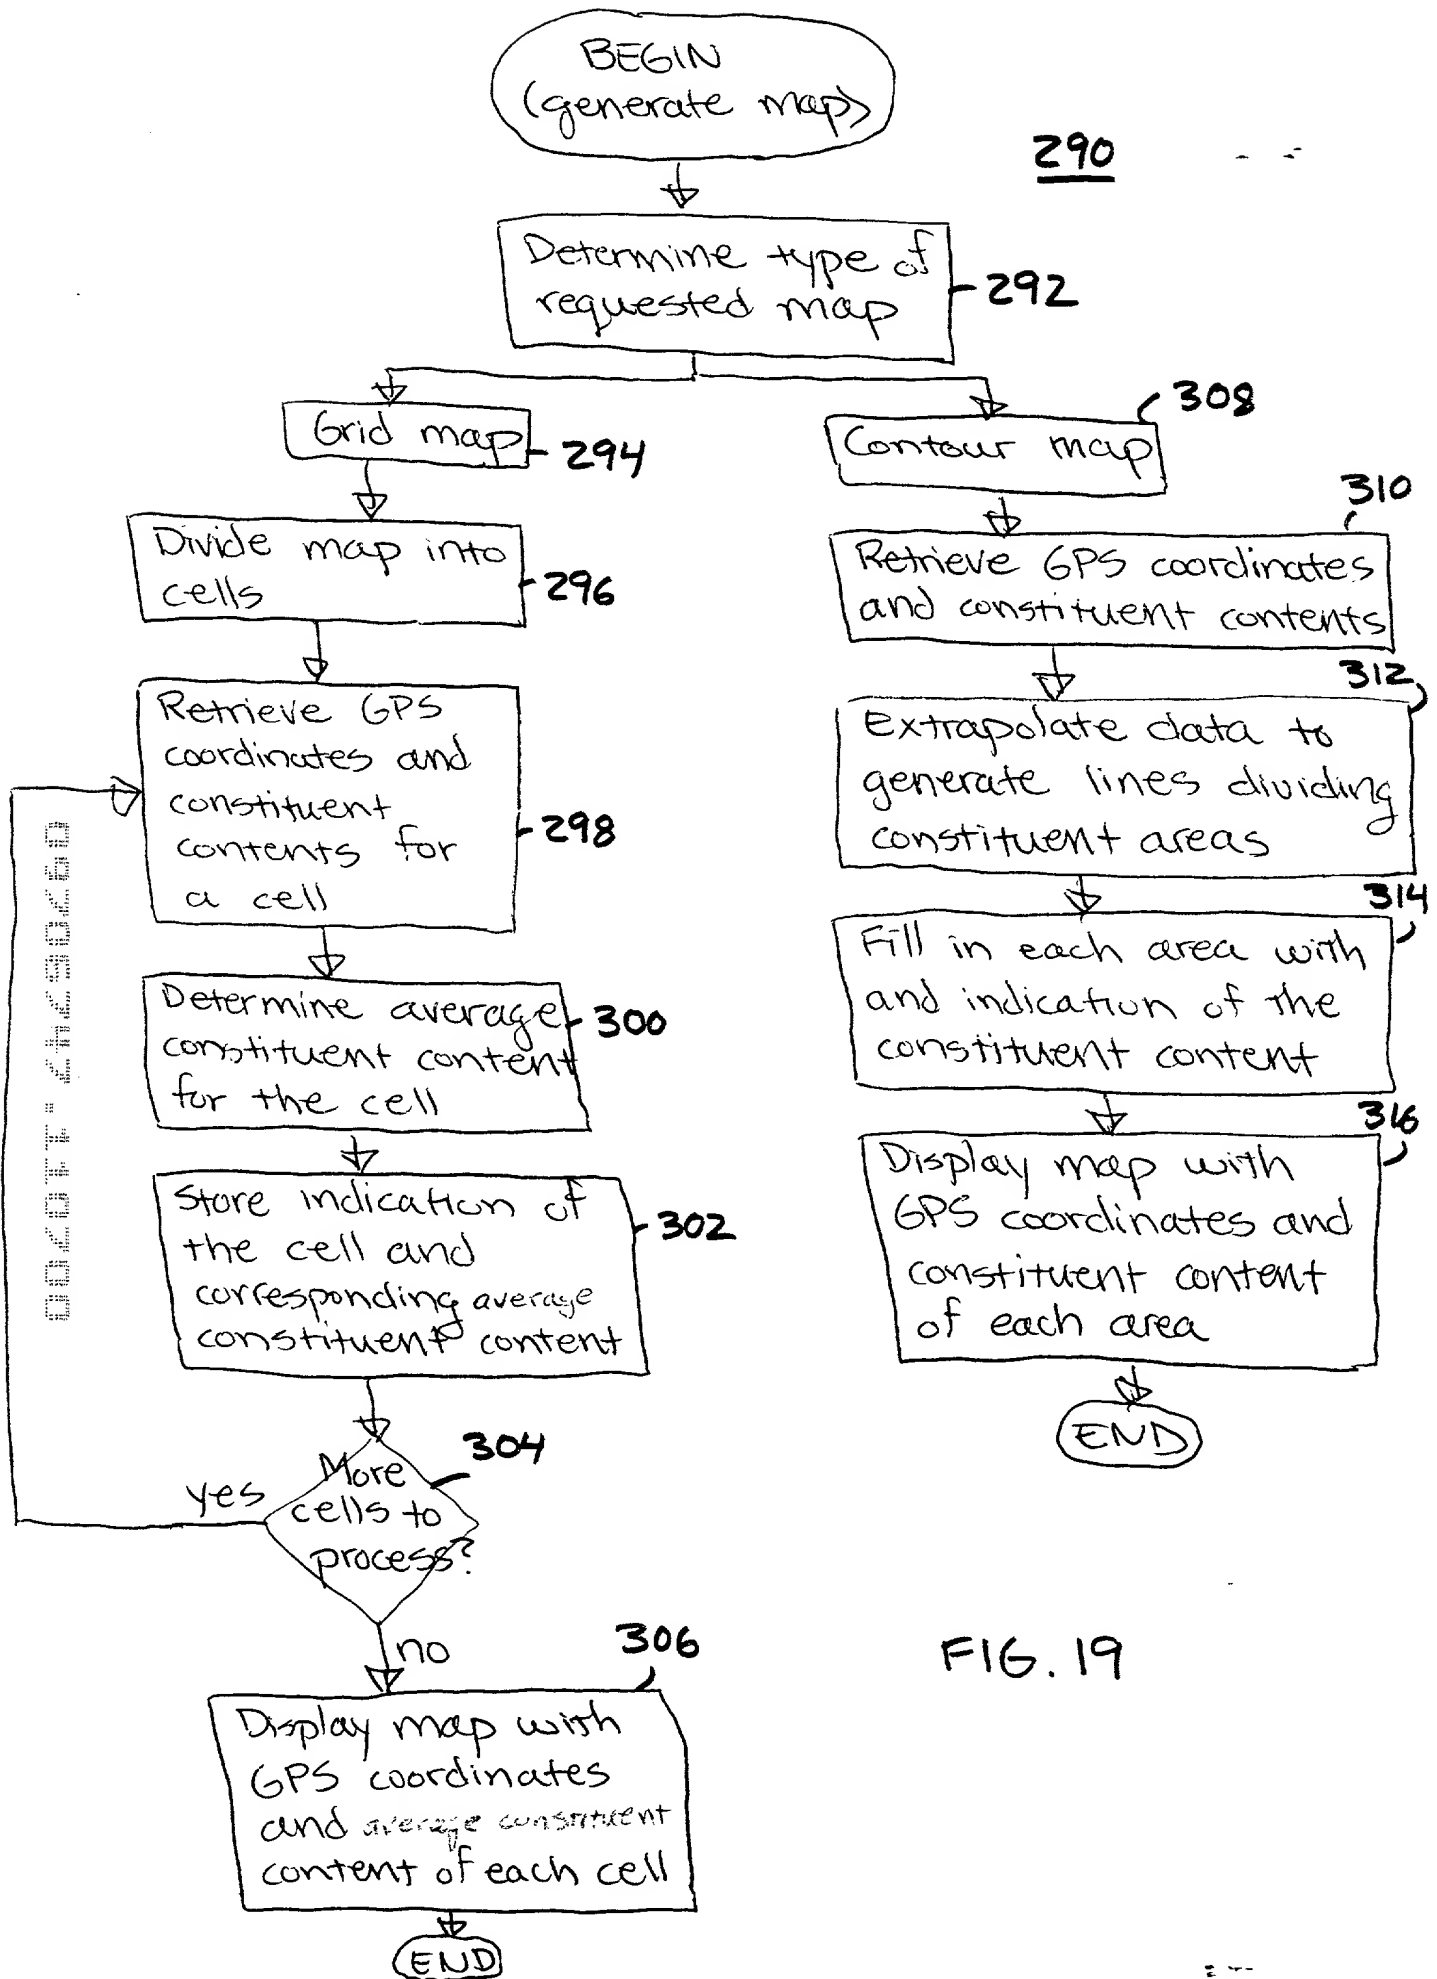 BEGIN
(generate map)
290
Determine type of
requested map
292
Grid map
294
Divide map into
cells
296
Retrieve GPS
coordinates and
constituent
contents for
a cell
298
Determine average
constituent content
for the cell
300
Store indication of
the cell and
corresponding average
constituent content
302
More
cells to
process?
304
yes
no
306
Display map with
GPS coordinates
and average constituent
content of each cell
END
Contour map
308
310
Retrieve GPS coordinates
and constituent contents
312
Extrapolate data to
generate lines dividing
constituent areas
314
Fill in each area with
and indication of the
constituent content
316
Display map with
GPS coordinates and
constituent content
of each area
END
FIG. 19